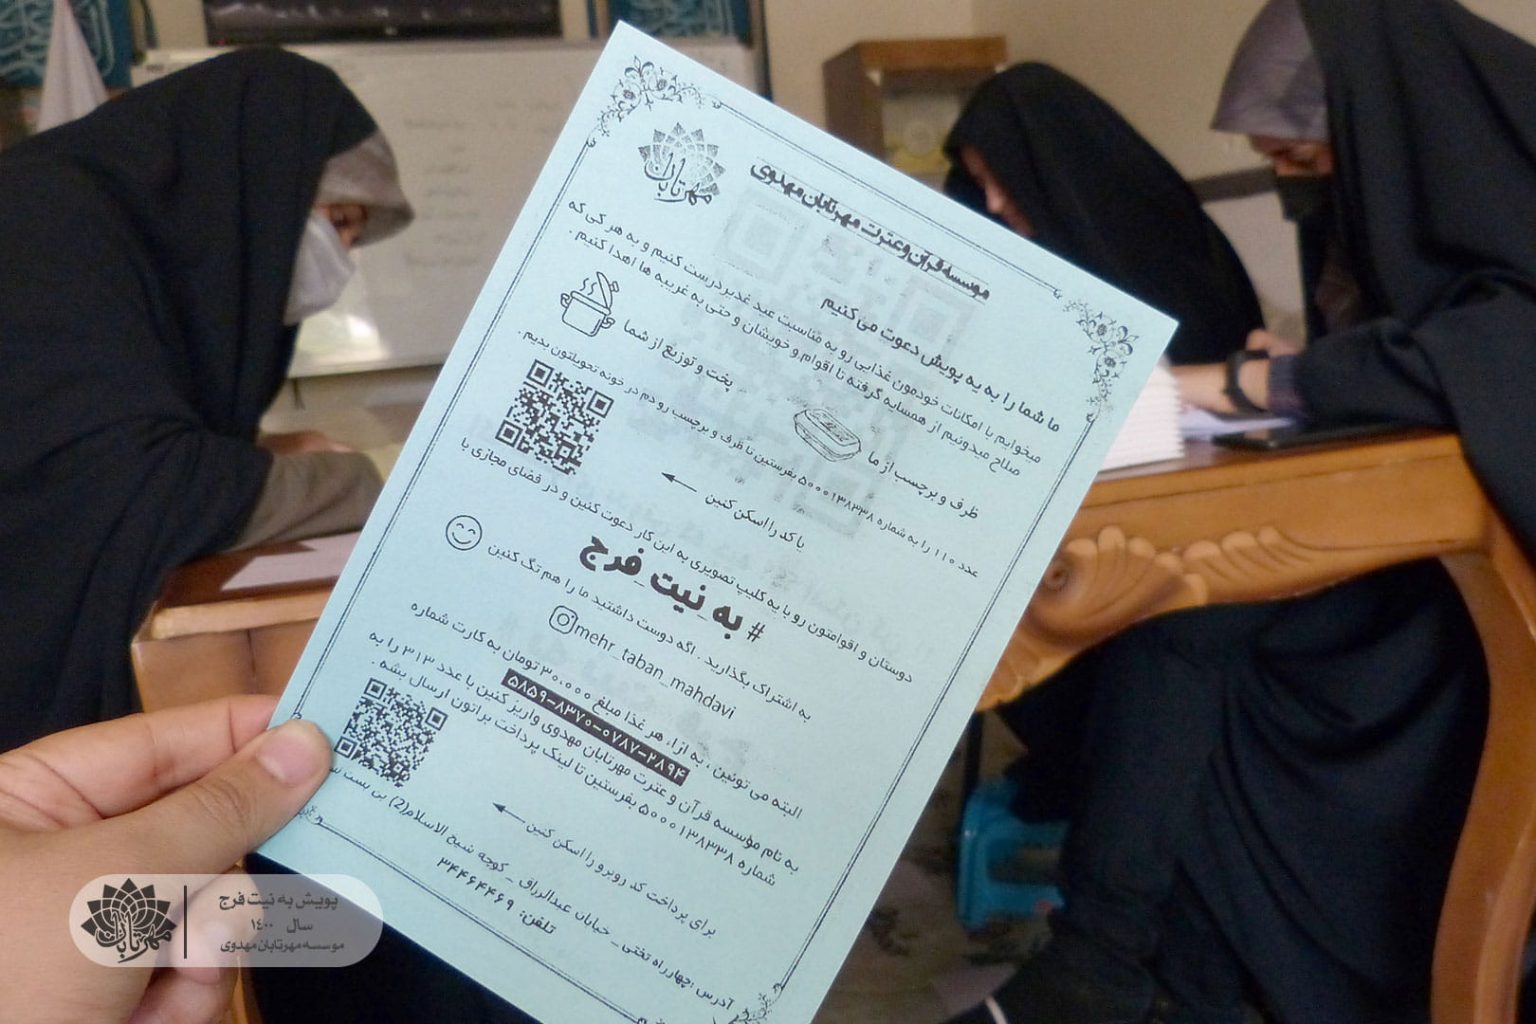 مهرتابان
موسسه قرآن و عترت مهرتابان مهدوی
ما شما را به یه پویش دعوت می کنیم
میخوایم با امکانات خودمون غذایی رو به مناسبت عید غدیر درست کنیم و به هر کی که
صلاح میدونیم از همسایه گرفته تا اقوام و خویشان و حتی به غریبه ها اهدا کنیم .
پخت و توزیع از شما
ظرف و برچسب از ما
عدد ۱۱۰ را به شماره ۵۰۰۰۱۳۸۳۳۸ بفرستین تا ظرف و برچسب رو دم در خونه تحویلتون بدیم .
یا کد را اسکن کنین
دوستان و اقوامتون رو با یه کلیپ تصویری به این کار دعوت کنین و در فضای مجازی با
# به_نیت_فرج
به اشتراک بگذارید . اگه دوست داشتید ما را هم تگ کنین
mehr_taban_mahdavi
البته می تونین : به ازاء هر غذا مبلغ ۳۰.۰۰۰ تومان به کارت شماره
۵۸۵۹-۸۳۷۰-۰۷۸۷-۲۸۹۴
به نام مؤسسه قرآن و عترت مهرتابان مهدوی واریز کنین یا عدد ۳۱۳ را به
شماره ۵۰۰۰۱۳۸۳۳۸ بفرستین تا لینک پرداخت براتون ارسال بشه .
برای پرداخت کد روبرو را اسکن کنین
آدرس :چهارراه تختی _ خیابان عبدالرزاق _ کوچه شیخ الاسلام(2) بی بست
تلفن: ۳۴۴۶۴۴۶۹
مهرتابان
پویش به نیت فرج
سال ۱۴۰۰
موسسه مهرتابان مهدوی